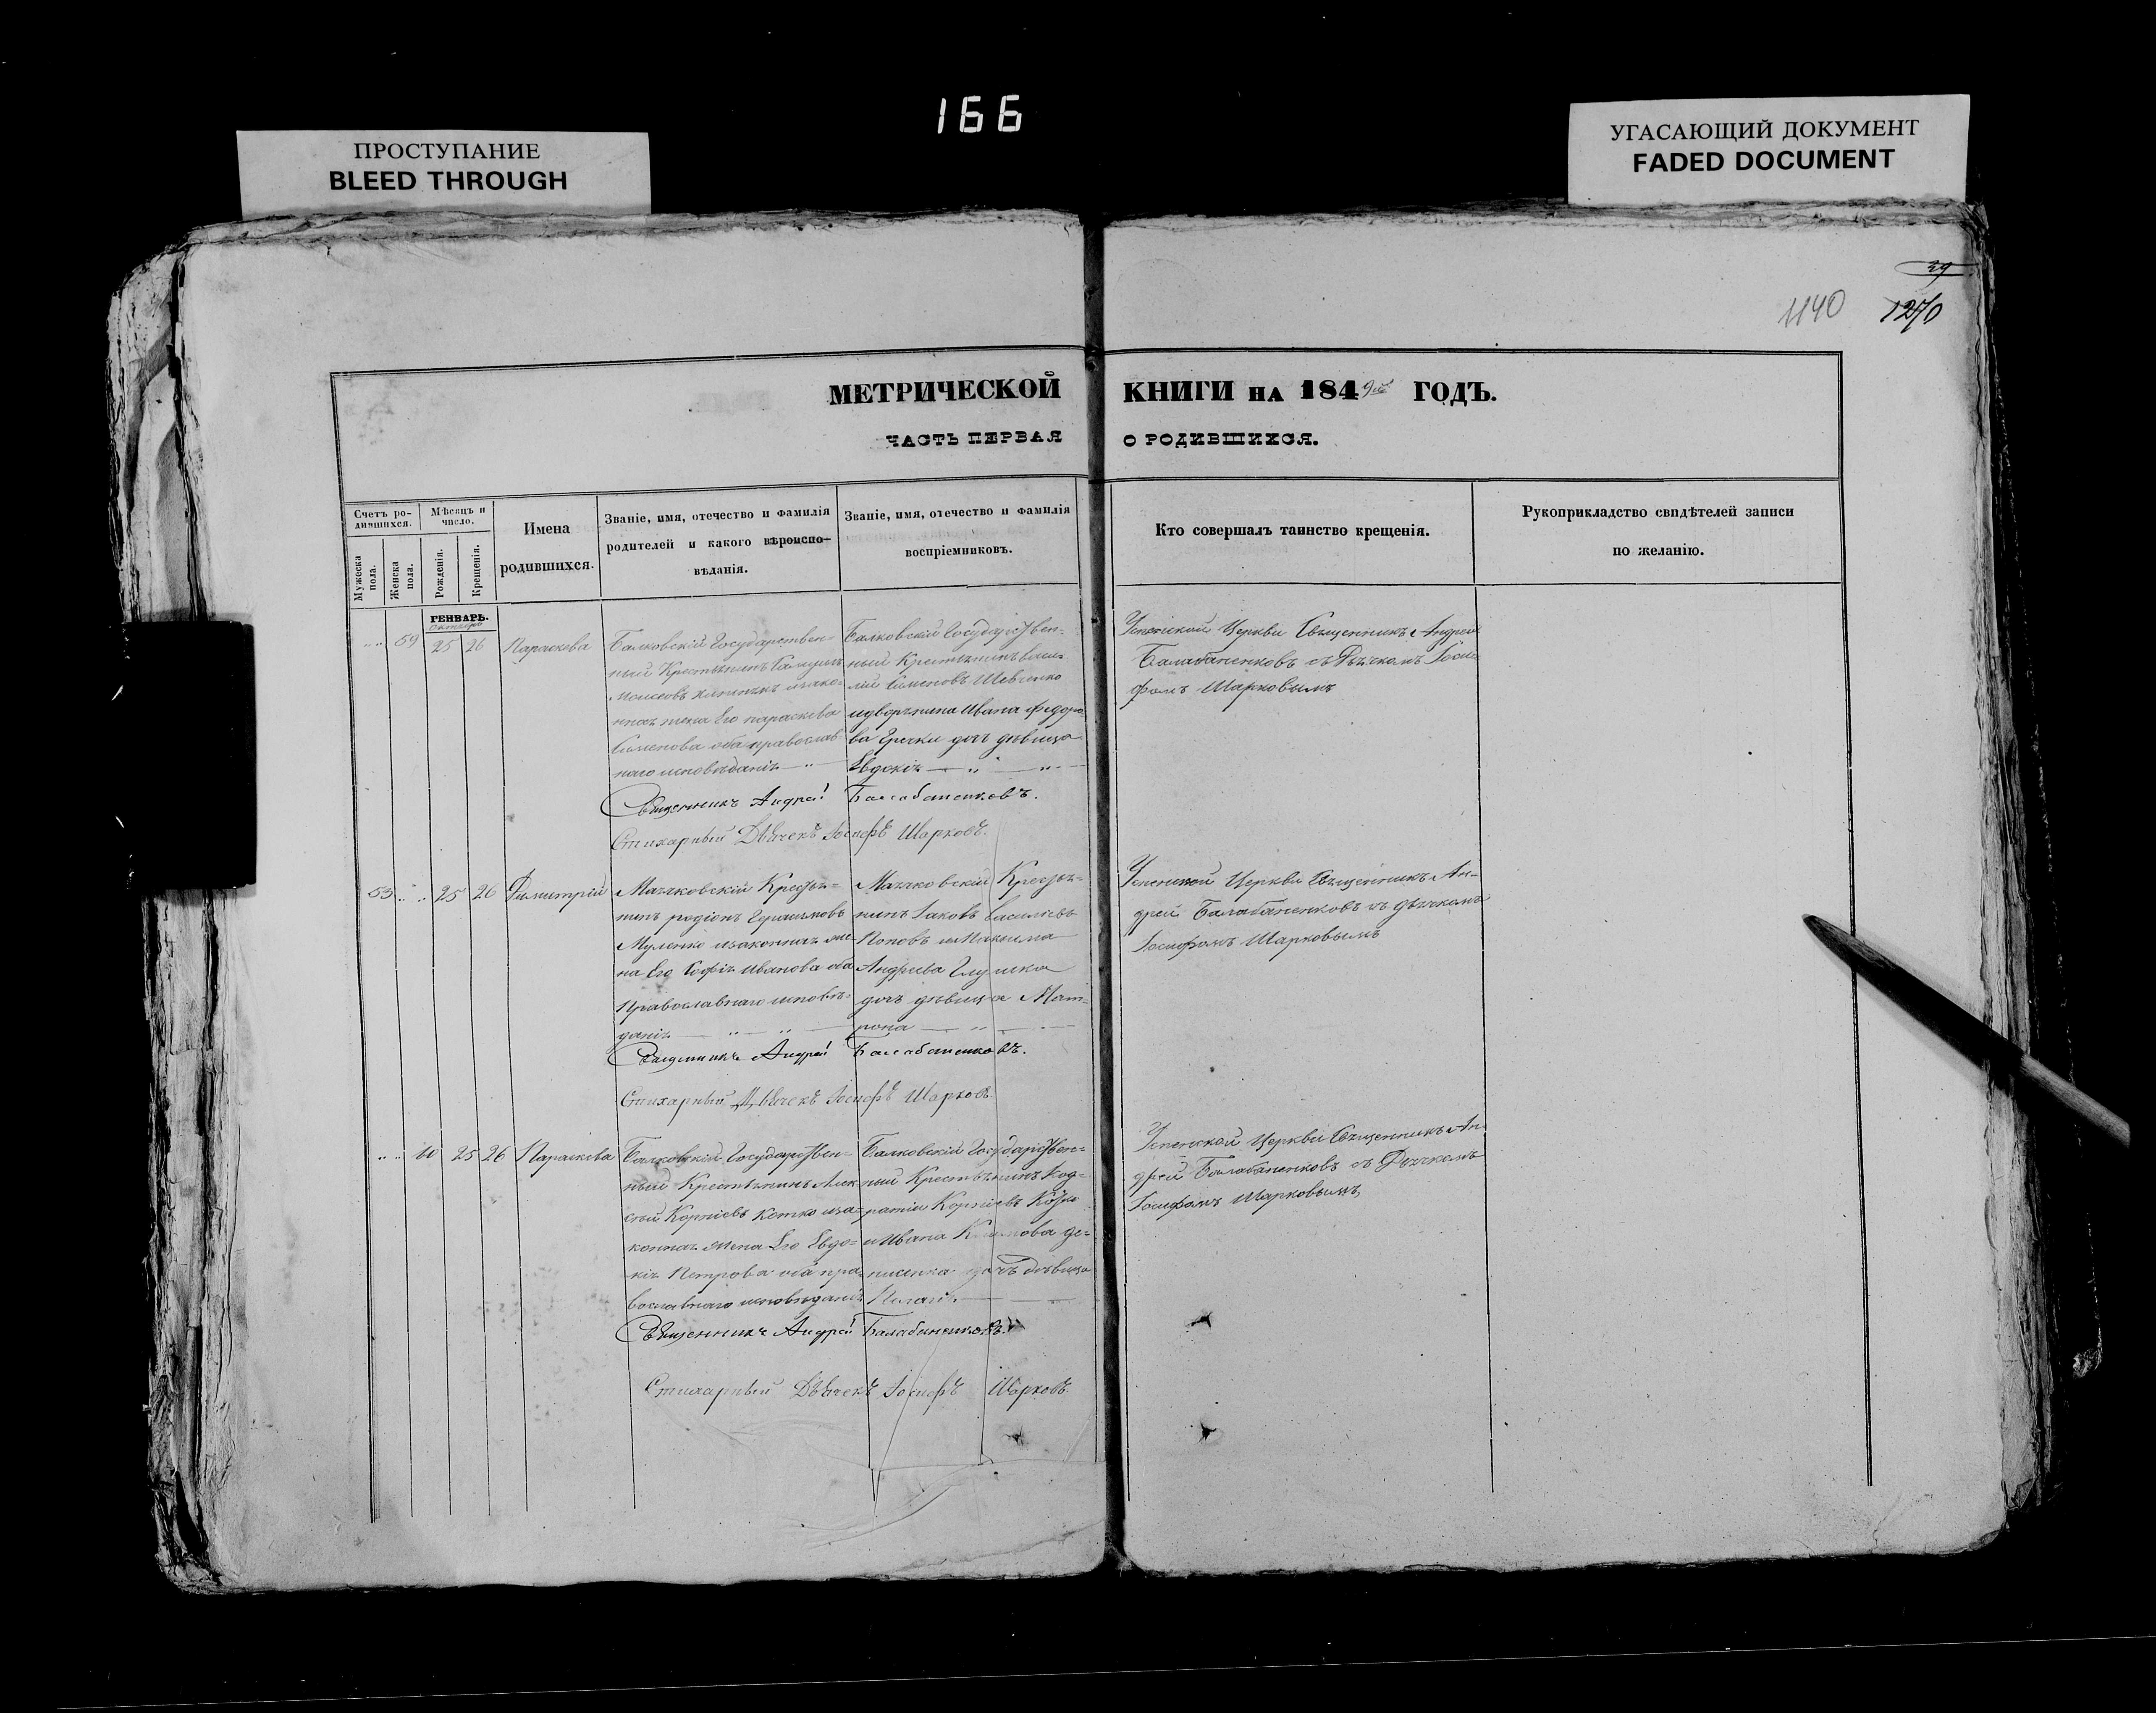 166
ПРОСТУПАНИЕ
BLEED THROUGH
УГАСАЮЩИЙ ДОКУМЕНТ
FADED DOCUMENT
39
1140 1270
МЕТРИЧЕСКОЙ КНИГИ НА 1849 ГОДЪ.
ЧАСТЬ ПЕРВАЯ О РОДИВШИХСЯ.
Счетъ ро-
дившихся.
Мужеска
пола.
Женска
пола.
Мѣсяцъ и
число.
Рожденія.
Крещенія.
Имена
родившихся.
Званіе, имя, отечество и фамилія
родителей и какого вѣроиспо-
вѣданія.
Званіе, имя, отечество и фамилія
воспріемниковъ.
Кто совершалъ таинство крещенія.
Рукоприкладство свидѣтелей записи
по желанію.
ГЕНВАРЬ.
Октябрь
59 25 26 Параскева
Балковскій Государствен-
ный Крестьянинъ
Моисеовъ
жена Его параскева
Сименова оба православ-
наго исповѣданія
Балковскій Государствен-
ный Крестьянинъ Васи-
лій Сименовъ Шевченко
Ивана Федоро-
ва дочь дѣвица
Евдокія
Успенской Церкви Священникъ Андрей
Балабаненковъ съ Дьячкомъ Іоси-
фомъ Шарковымъ
Священникъ Андрей Балабаненковъ.
Стихарный Дьячекъ Іосифъ Шарковъ.
53 25 26 Димитрій
Маячковскій Крестья-
нинъ родіонъ
изаконная же-
на Его Софія Иванова оба
Православнаго исповѣ-
данія
Маячковскій Крестья-
нинъ Іаковъ Васильевъ
Поповъ и Максима
Андреева
дочь дѣвица Мат-
рона
Успенской Церкви Священникъ Ан-
дрей Балабаненковъ съ дьячкомъ
Іосифомъ Шарковымъ
Священникъ Андрей Балабаненковъ.
Стихарный Дьячекъ Іосифъ Шарковъ
60 25 26 Параскева
Балковскій Государствен-
ный Крестьянинъ Алек-
сѣй Корніевъ Котко иза-
конная жена Его Евдо-
кія Петрова оба пра-
вославнаго исповѣданія
Балковскій Государствен-
ный Крестьянинъ Код-
ратій Корніевъ Котко
и Ивана Климова де-
нисенка дочь дѣвица
Пелагія
Успенской Церкви Священникъ Ан-
дрей Балабаненковъ съ Дьячкомъ
Іосифомъ Шарковымъ
Священникъ Андрей Балабаненковъ.
Стихарный Дьячекъ Іосифъ Шарковъ